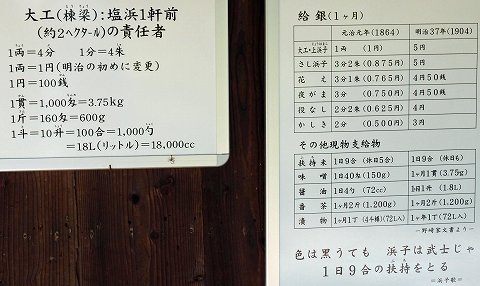 大工(棟梁):塩浜1軒前
(約2ヘクタール)の責任者
1両=4分 1分=4朱
1両=1円(明治の初めに変更)
1円=100銭
1貫=1,000匁=3.75kg
1斤=160匁=600g
1斗=10升=100合=1,000勺
=18L(リットル)=18,000cc
給銀(1ヶ月)
元治元年(1864) 明治37年(1904)
大工・上浜子 1両 (1円) 5円
さし浜子 3分2朱(0.875円) 5円
花え 3分2朱(0.875円) 4円50銭
夜がま 3分 (0.750円) 4円50銭
役なし 2分2朱(0.625円) 4円
かしき 2分 (0.500円) 3円
その他現物支給物
扶持米 1日9合(休日5合) 1日9合(休日も)
味噌 1日40匁(150g) 1ヶ月1貫(3.75g)
醤油 1日4勺(72cc) 1ヶ月1升(1.8L)
番茶 1ヶ月2斤(1.200g) 1ヶ月2斤(1.200g)
漬物 1ヶ月1丁(4斗樽)(72L入) 1ヶ年1丁(72L入)
―野崎家文書より―
色は黒うても 浜子は武士じゃ
1日9合の扶持をとる
=浜子歌=